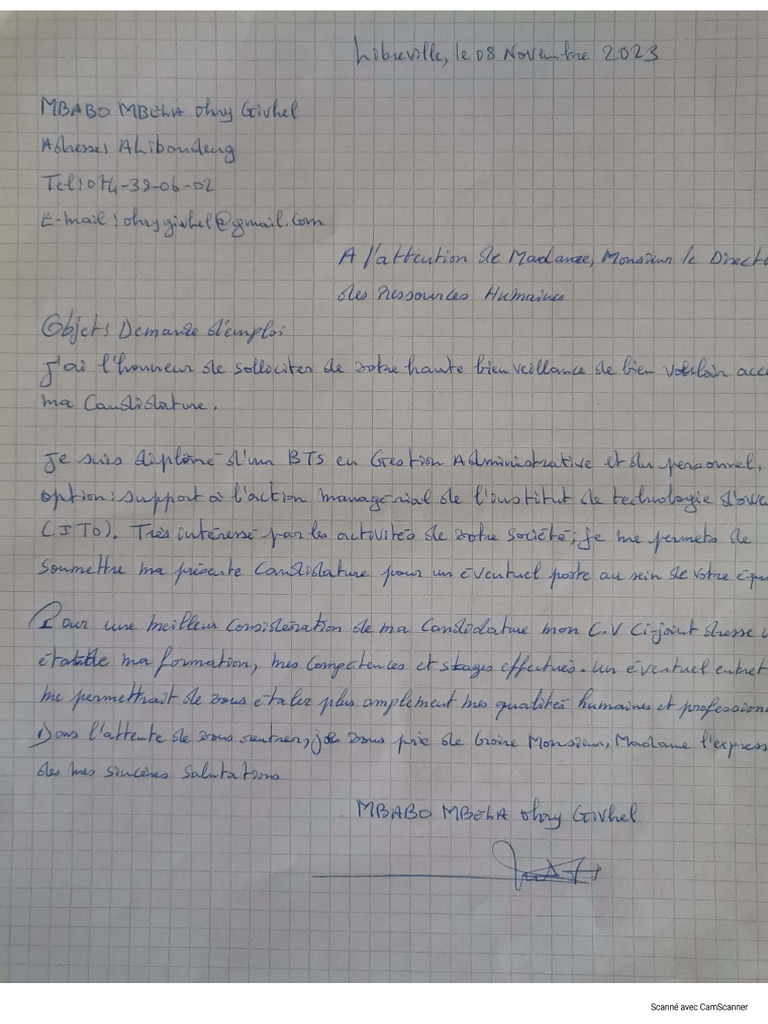 Libreville, le 08 Novembre 2023
MBABO MBELA Ohry Givhel
Adresse: Alibandeng
Tel: 074-39-06-02
E-mail: ohrygivhel@gmail.com
A l'attention de Madame, Monsieur le Direct
des Ressources Humaines
Objet: Demande d'emploi
J'ai l'honneur de solliciter de votre haute bienveillance de bien vouloir acc
ma Candidature.
Je suis diplômé d'un BTS en Gestion Administrative et du personnel,
option: support à l'action managérial de l'institut de technologie d'owe
(ITO). Très intéressé par les activités de votre société; je me permets de
soumettre ma présente Candidature pour un éventuel poste au sein de votre équi
Pour une meilleur Considération de ma Candidature mon C.V Ci-joint dresse
ma formation, mes Compétences et stages effectués. Un éventuel entret
me permettrait de vous étaler plus amplement mes qualités humaines et profession
Dans l'attente de vous rentrer, je vous prie de Croire Monsieur, Madame l'express
des mes sincères Salutations
MBABO MBELA Ohry Givhel
Scanné avec CamScanner